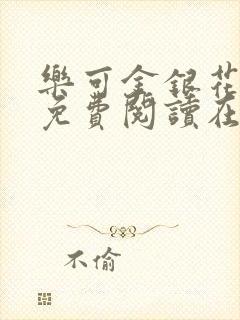 樂可金銀花
免費閱讀在
不偷